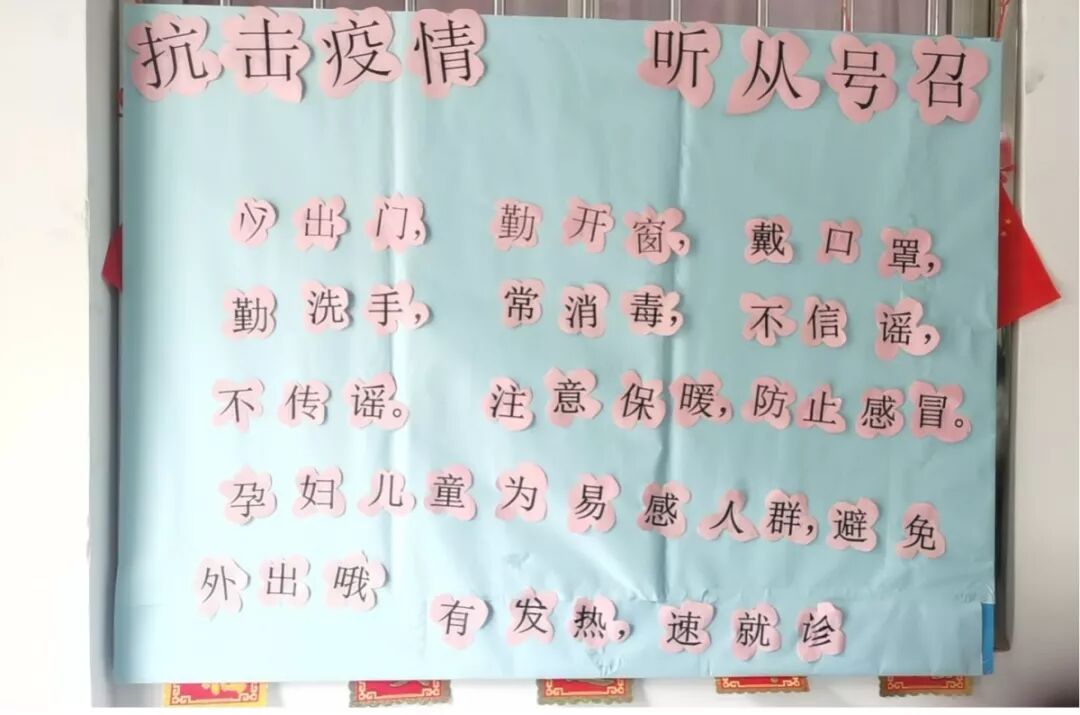 抗击疫情 听从号召
少出门， 勤开窗， 戴口罩，
勤洗手， 常消毒， 不信谣，
不传谣。 注意保暖，防止感冒。
孕妇儿童为易感人群，避免
外出哦
有发热，速就诊